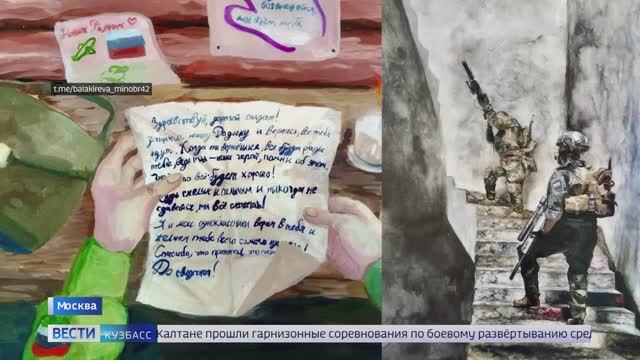 возвращайся,
t.me/balakireva_minobr42
Здравствуй, дорогой солдат!
нашу Родину и вернись, все тебя
ждут. Когда ты вернешься, все будут рады
тебя ведь ты – наш герой, помни об этом.
всё будет хорошо!
Будь смелым и сильным и никогда не
сдавайся, ты всё сможешь!
Я и мои одноклассники верим в тебя и
желаем тебе всего самого
Спасибо, что прочитал это
До свидания!
Москва
ВЕСТИ КУЗБАСС
Калтане прошли гарнизонные соревнования по боевому развёртыванию сре